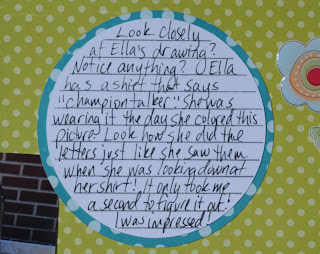 Look Closely
at Ella's drawing?
Notice anything? Ella
has a shirt that says
"champion talker". She was
wearing it the day she colored this
picture. Look how she did the
letters just like she saw them
when she was looking down at
her shirt! It only took me
a second to figure it out!
I was impressed!